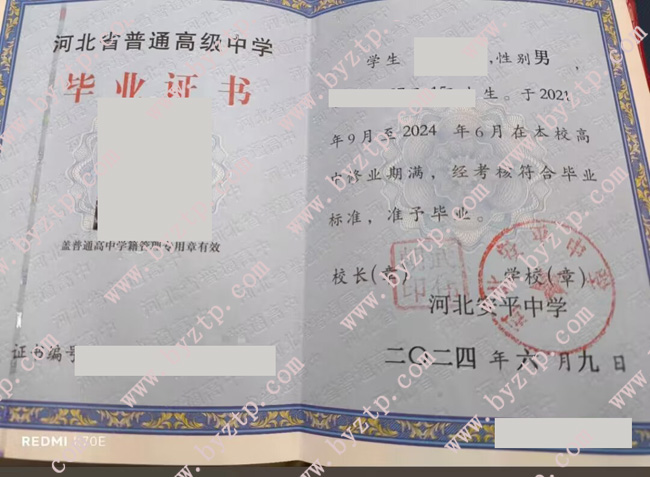 河北省普通高级中学
毕业证书
盖普通高中学籍管理专用章有效
证书编号
学生 ,性别男,
生。于2021
年9月至2024 年6月在本校高
中修业期满,经考核符合毕业
标准,准予毕业。
校长(章) 学校(章)
河北安平中学
二〇二四 年 六 月 九 日
REDMI K70E
www.byztp.com